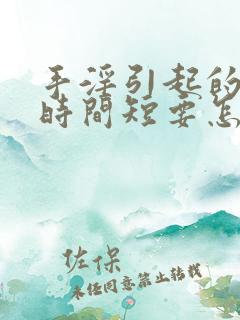 手淫引起的
時間短要怎
佐保
未经同意禁止转载